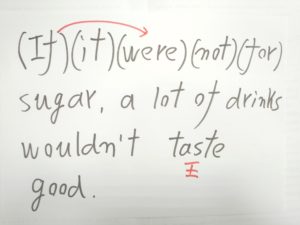 (If)(it)(were)(not)(for)
sugar, a lot of drinks
wouldn't taste
good.